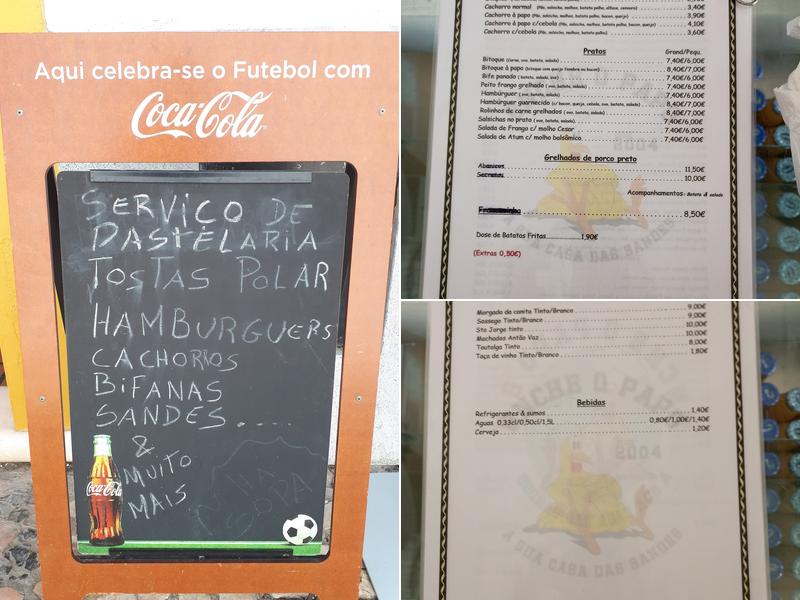 Aqui celebra-se o Futebol com
Coca-Cola
SERVIÇO DE
PASTELARIA
TOSTAS POLAR
HAMBURGUERS
CACHORROS
BIFANAS
SANDES.....
&
MUITO
MAIS
Coca-Cola
Cachorro normal (Pão, salsicha, molhos, batata palha, alface, cenoura) 3,40€
Cachorro à papo (Pão, salsicha, molhos, batata palha, bacon, queijo) 3,90€
Cachorro à papo c/cebola (Pão, salsicha, molhos, batata palha, bacon, queijo) 4,10€
Cachorro c/cebola (Pão, salsicha, molhos, batata palha) 3,60€
Pratos Grand/Pequ.
Bitoque (carne, ovo, batata, salada) 7,40€/6,00€
Bitoque à papo (bitoque com queijo fiambre ou bacon) 8,40€/7,00€
Bife panado (batata, salada, ovo) 7,40€/6,00€
Peito frango grelhado (ovo, batata, salada) 7,40€/6,00€
Hambúrguer (ovo, batata, salada) 7,40€/6,00€
Hambúrguer guarnecido (c/ bacon, queijo, cebola, ovo, batata, salada) 8,40€/7,00€
Rolinhos de carne grelhados (ovo, batata, salada) 8,40€/7,00€
Salsichas no prato (ovo, batata, salada) 7,40€/6,00€
Salada de Frango c/ molho Cesar 7,40€/6,00€
Salada de Atum c/ molho balsâmico 7,40€/6,00€
Grelhados de porco preto
Abanicos 11,50€
Secretos 10,00€
Acompanhamentos: Batata & salada
8,50€
Dose de Batatas Fritas 1,90€
(Extras 0,50€)
2004
A CASA DAS SANDES
9,00€
Morgado da canita Tinto/Branco 9,00€
Sossego Tinto/Branco 10,00€
Sto Jorge tinto 10,00€
Machados Antão Vaz 8,00€
Toutalga Tinto
Taça de vinho Tinto/Branco 1,80€
Bebidas
Refrigerantes & sumos 1,40€
Aguas 0,33cl/0,50cl/1,5L 0,80€/1,00€/1,40€
Cerveja 1,20€
2004
A SUA CASA DAS SANDES